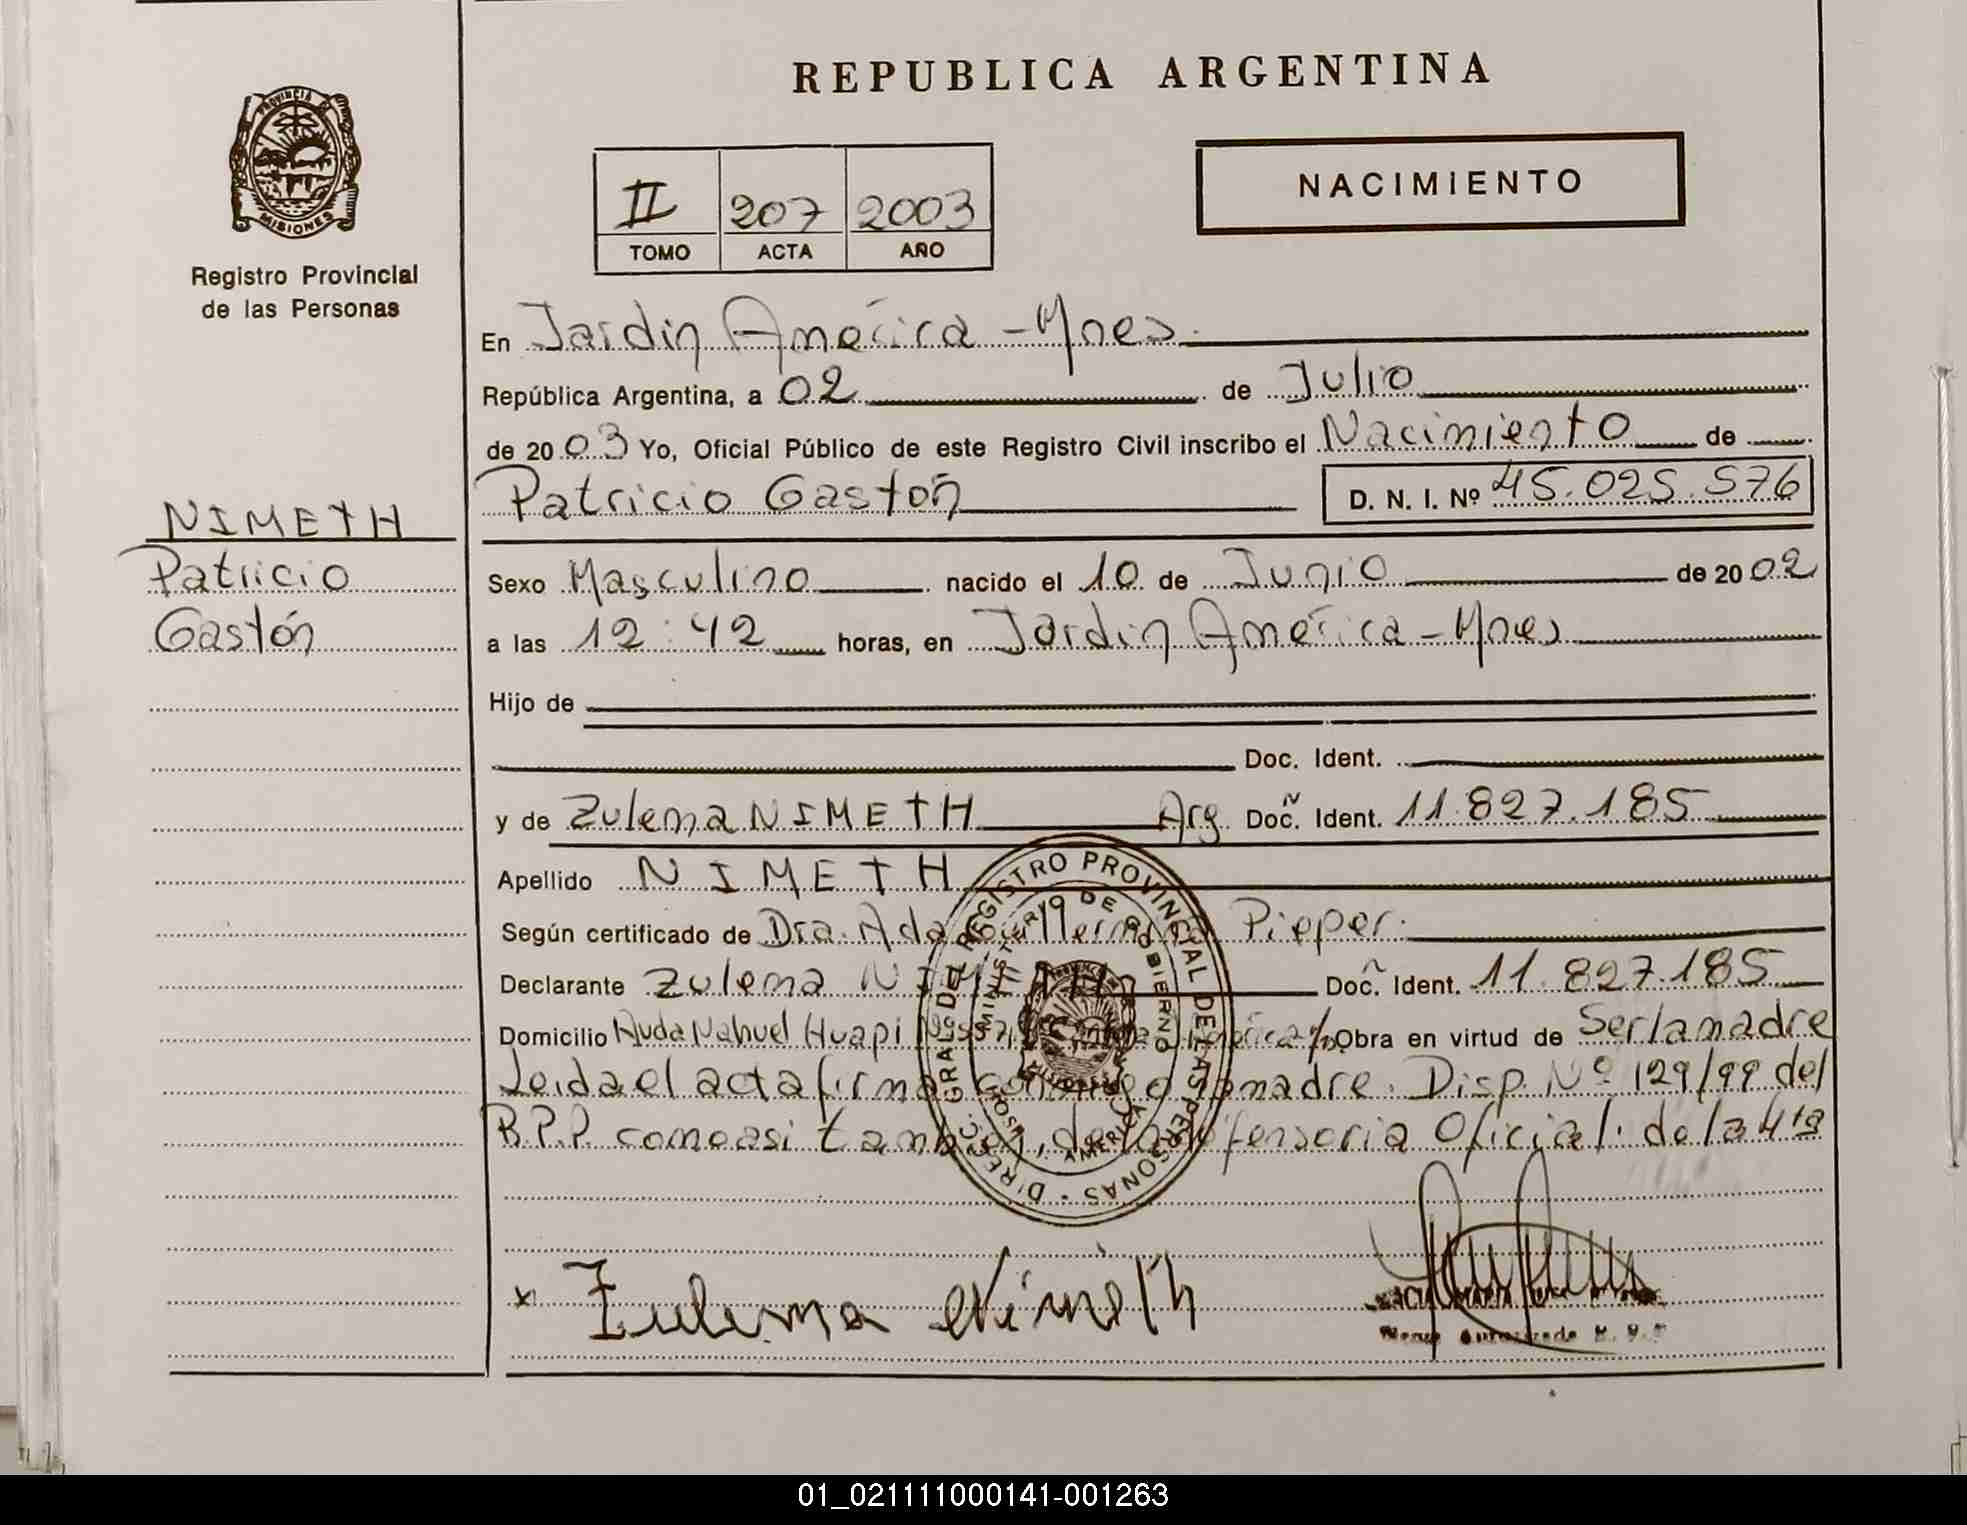 REPUBLICA ARGENTINA
PROVINCIA DE
MISIONES
Registro Provincial
de las Personas
II 207 2003
TOMO ACTA AÑO
NACIMIENTO
En Jardín América - Mnes.
República Argentina, a 02 de Julio
de 2003 Yo, Oficial Público de este Registro Civil inscribo el Nacimiento de
Patricio Gastón D. N. I. Nº 45.025.576
NIMETH
Patricio
Gastón
Sexo Masculino nacido el 10 de Junio de 2002
a las 12:42 horas, en Jardín América - Mnes
Hijo de
Doc. Ident.
y de Zulema NIMETH Arg. Doc. Ident. 11.827.185
Apellido NIMETH
Según certificado de Dra. Ada Pieper.
Declarante Zulema NIMETH Doc. Ident. 11.827.185
Domicilio Avda Nahuel Huapi Obra en virtud de Ser la madre
Leida el acta firma conmigo la madre. Disp. Nº 129/99 del
R.P.P. como asi también, de la Defensoria Oficial. de la 4ta
DIREC. GRAL. DEL REGISTRO PROVINCIAL DE LAS PERSONAS
MINISTERIO DE GOBIERNO
AMERICA
x Zulema Nimeth
01_021111000141-001263